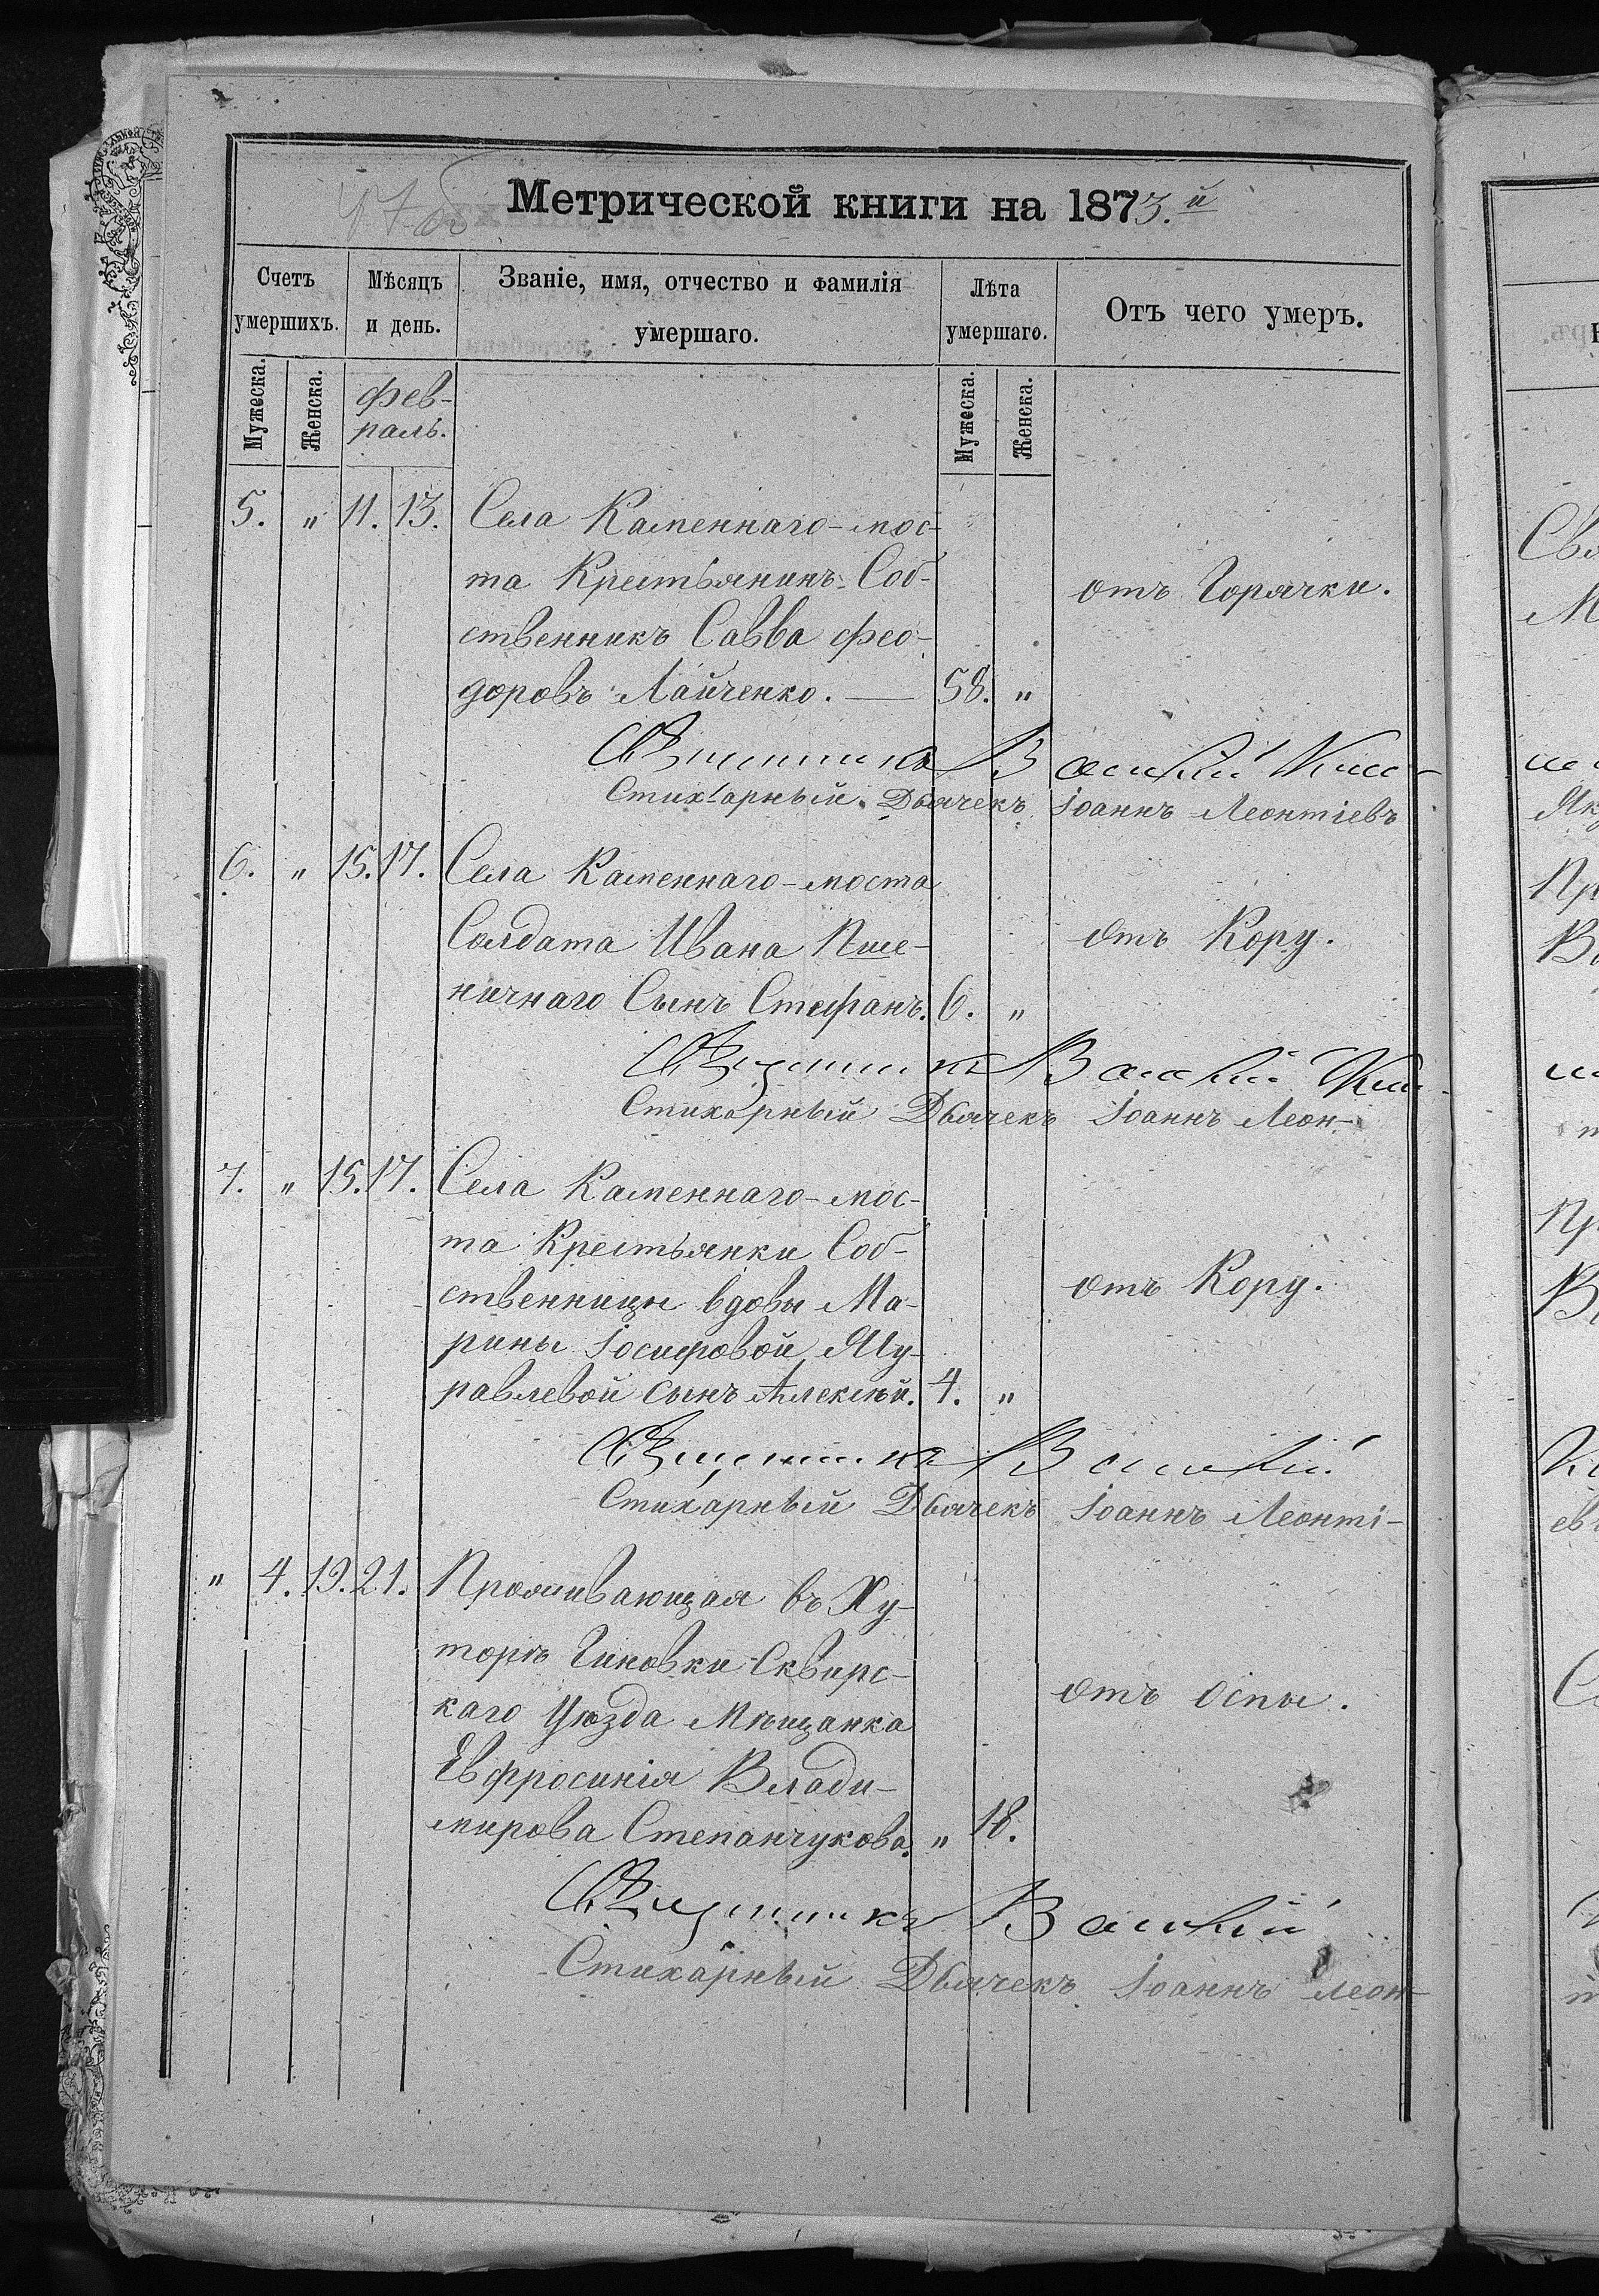 Метрической книги на 1873.й
Счетъ умершихъ.
Мѣсяцъ и день.
Званіе, имя, отчество и фамилія умершаго.
Лѣта умершаго.
Отъ чего умеръ.
Мужеска.
Женска.
Фев-
раль.
Мужеска.
Женска.
5. " 11. 13. Села Каменнаго-мос-
та Крестьянинъ-Соб- отъ Горячки.
ственникъ Савва Фео-
доровъ Лайченко. — 58. "
Священникъ Василій
Стихарный Дьячекъ Іоаннъ Леонтіевъ
6. " 15. 17. Села Каменнаго-моста
Солдата Ивана Пше- отъ Кору.
ничнаго Сынъ Стефанъ. 6. "
Священникъ Василій
Стихарный Дьячекъ Іоаннъ Леон-
7. " 15. 17. Села Каменнаго-мос-
та Крестьянки Соб-
ственницы вдовы Ма- отъ Кору.
рины Іосифовой Му-
равлевой сынъ Алексѣй. 4. "
Священникъ Василій
Стихарный Дьячекъ Іоаннъ Леонті-
" 4. 19. 21. Проживающая въ Ху-
торѣ Сквирс-
каго Уѣзда Мѣщанка отъ Оспы.
Евфросинія Влади-
мирова Степанчукова. " 18.
Священникъ Василій
Стихарный Дьячекъ Іоаннъ Леон-